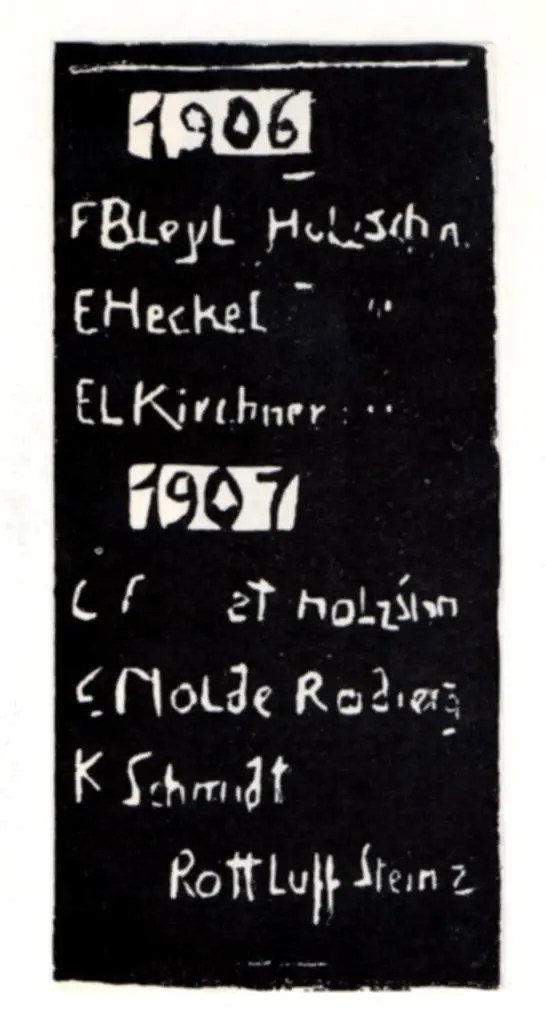 1906
F BLeyL Holzschn.
E Heckel "
EL Kirchner "
1907
Holzschn
E NoLde Radierg
K Schmidt
RottLuff Steinz